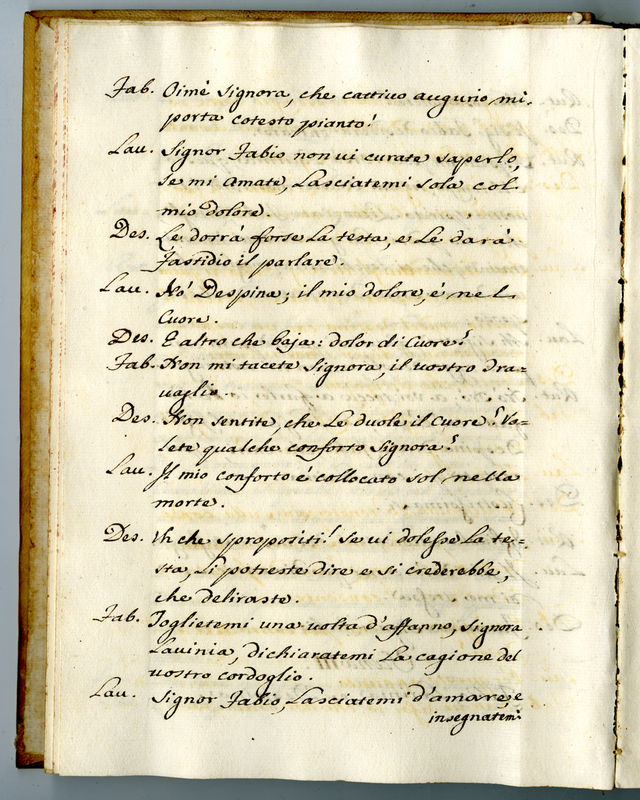 Fab. Oimè Signora, che cattivo augurio mi
porta cotesto pianto!
Lau. Signor Fabio non vi curate saperlo,
se mi amate, Lasciatemi sola col
mio dolore.
Des. Le dorrà forse La testa, e Le darà
fastidio il parlare.
Lau. Nò Despina; il mio dolore, è nel
Cuore.
Des. E altro che baja: dolor di Cuore!
Fab. Non mi tacete Signora, il vostro tra=
vaglio.
Des. Non sentite, che Le duole il Cuore! Vo=
lete qualche conforto Signora?
Lau. Il mio conforto è collocato sol nella
morte.
Des. Uh che spropositi! se vi dolesse La te=
sta, Li potreste dire e si crederebbe,
che deliraste.
Fab. Toglietemi una volta d'affanno, Signora
Lavinia, dichiaratemi La cagione del
vostro cordoglio.
Lau. Signor Fabio, Lasciatemi d'amare, e
insegnatemi